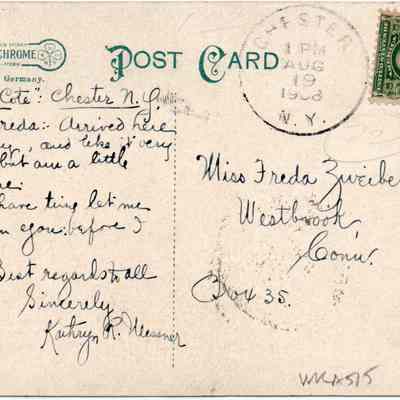 CHROME
Germany.
POST CARD
CHESTER
1 PM
AUG
19
1908
N. Y.
Cote": Chester N.Y.
reda:- Arrived here
, and like it very
but am a little
have time let me
you before I
Best regards to all
Sincerely
Kathryn R. Messner
Miss Freda Zweibe
Westbrook
Conn.
Box 35.